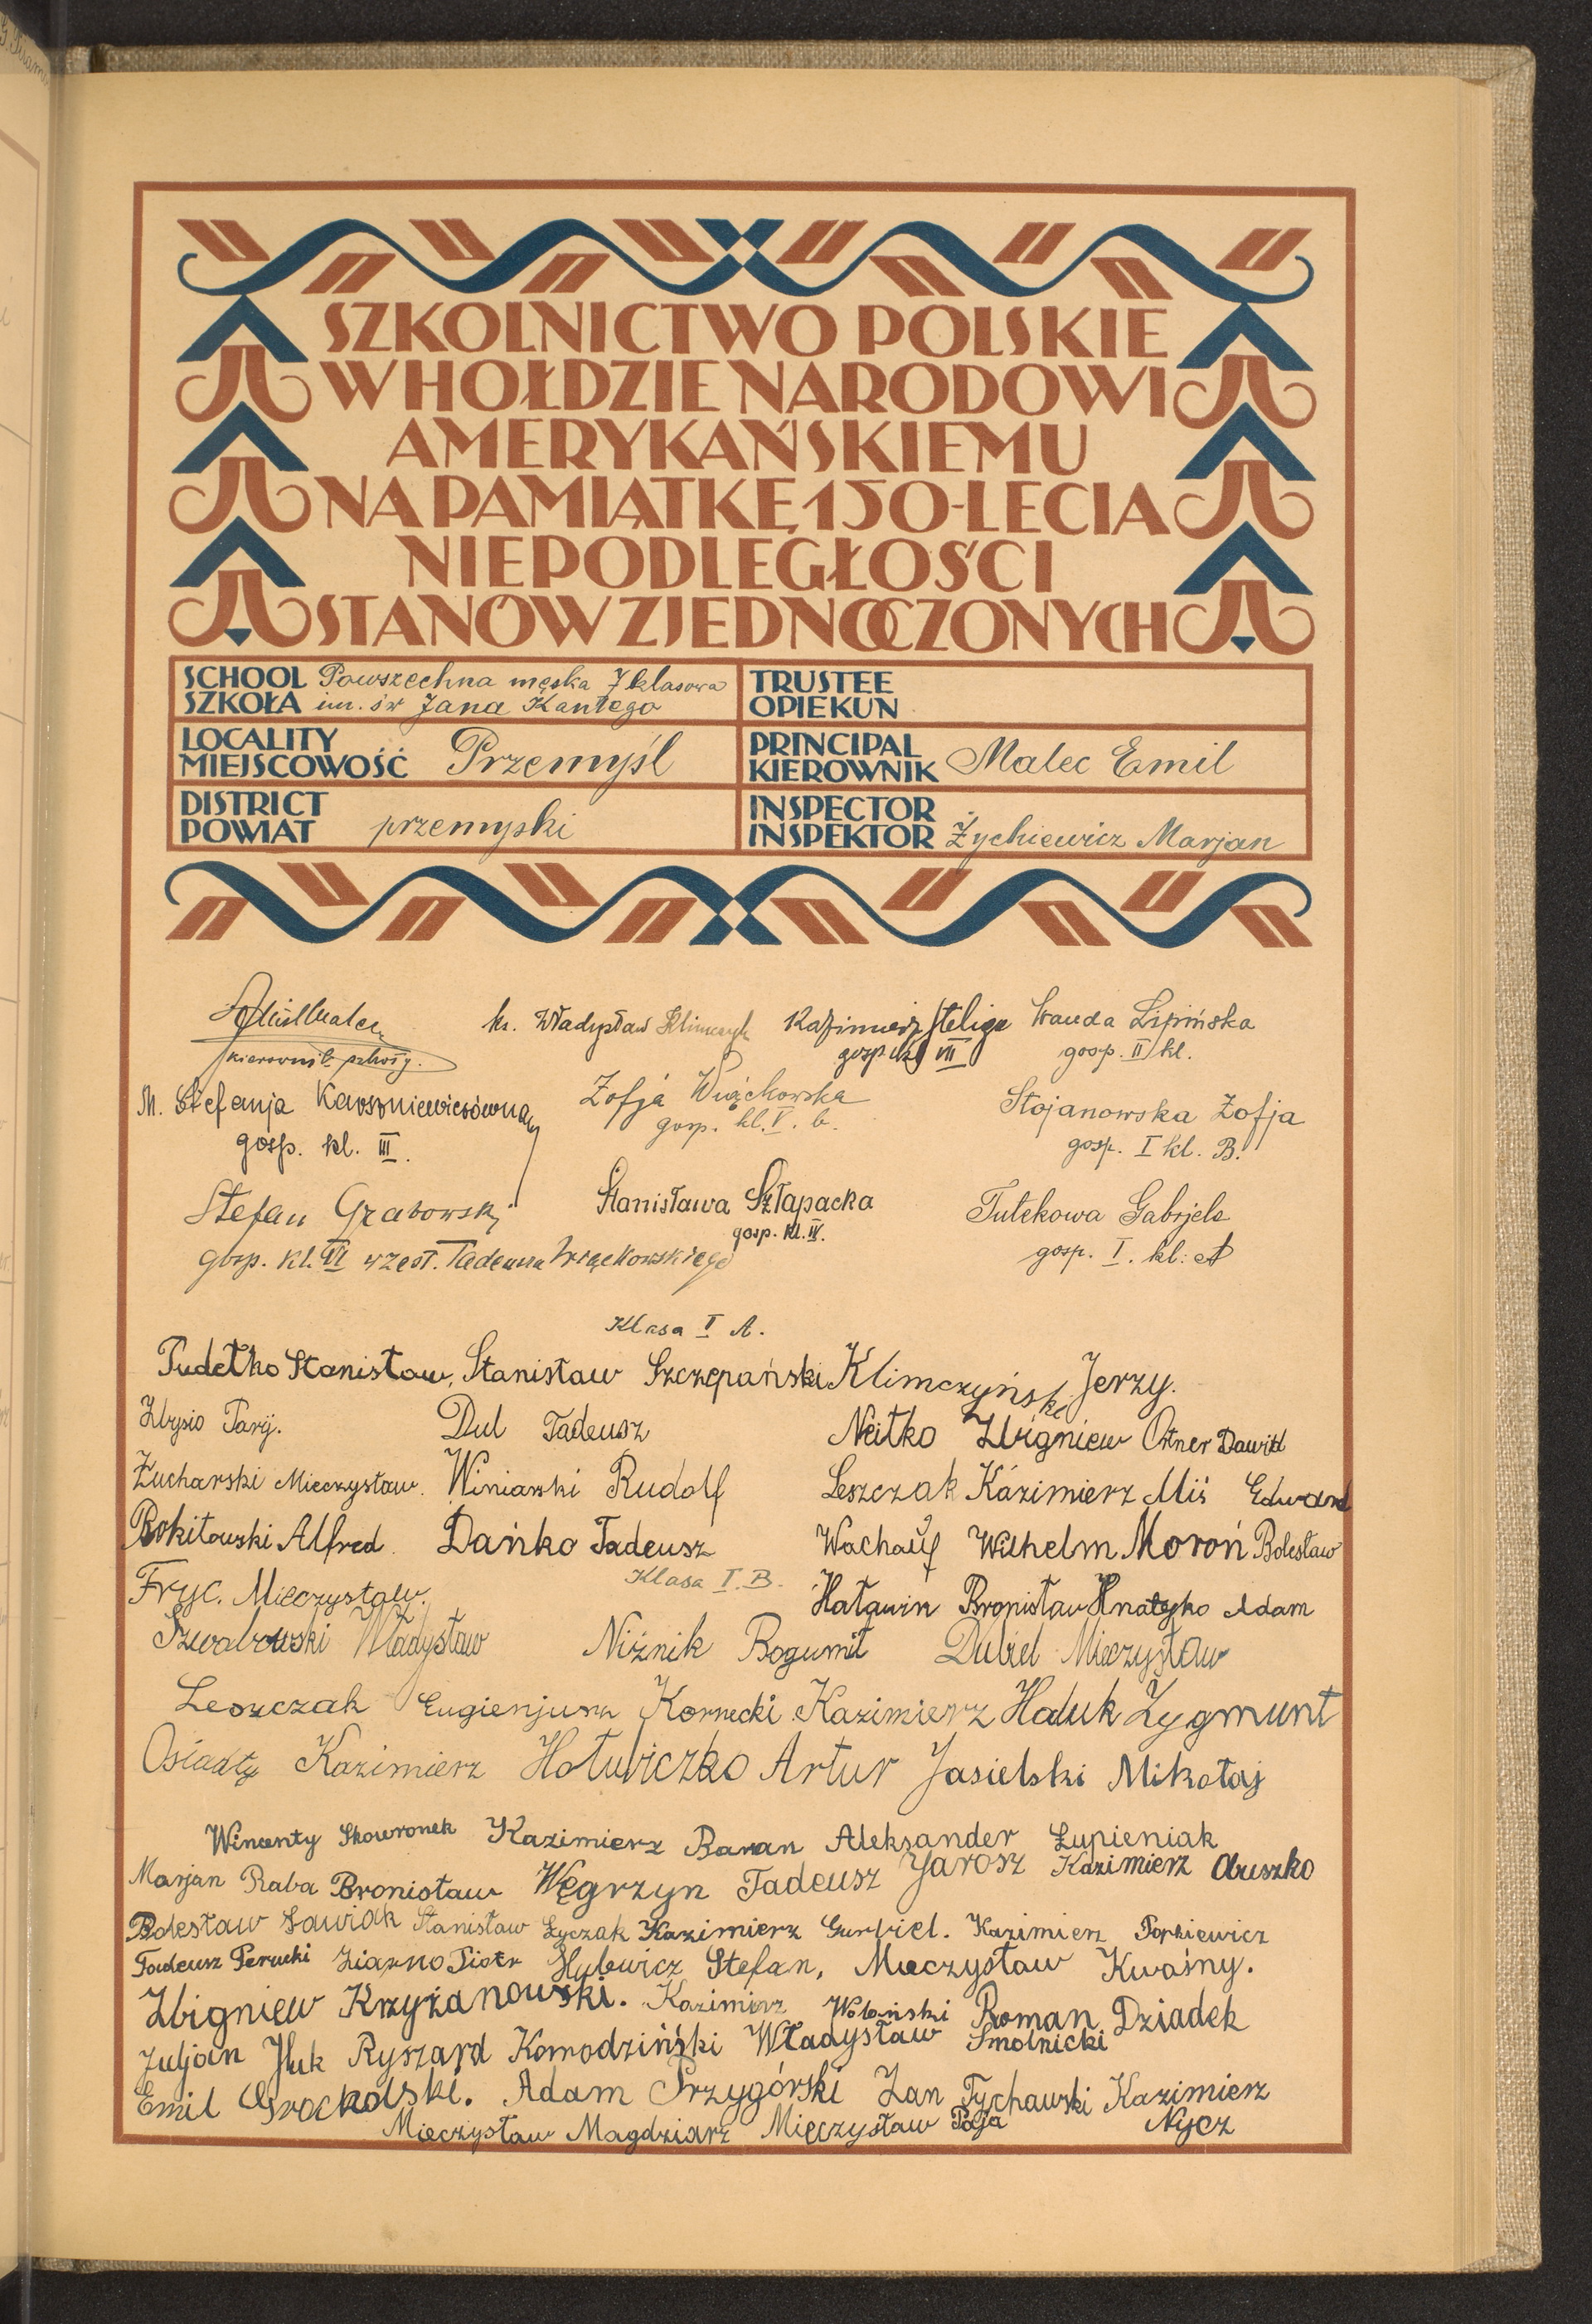 SZKOLNICTWO POLSKIE
W HOŁDZIE NARODOWI
AMERYKAŃSKIEMU
NA PAMIĄTKĘ 150-LECIA
NIEPODLEGŁOŚCI
STANÓW ZJEDNOCZONYCH
SCHOOL Powszechna męska 7 klasowa
SZKOŁA im. św Jana Kantego
TRUSTEE
OPIEKUN
LOCALITY
MIEJSCOWOŚĆ Przemyśl
PRINCIPAL
KIEROWNIK Malec Emil
DISTRICT
POWIAT przemyski
INSPECTOR
INSPEKTOR Żychiewicz Marjan
Emil Malec
kierownik szkoły.
ks. Władysław Klimczyk
Kazimierz Steliga
gosp. kl. VII
Wanda Lipińska
gosp. II kl.
M. Stefanja Karszniewiczówna
gosp. kl. III.
Zofja Wiąckowska
gosp. kl. V. b.
Stojanowska Zofja
gosp. I kl. B.
Stefan Grabowski
gosp. kl. VI w zast. Tadeusza Wiąckowskiego
Stanisława Szłapacka
gosp. kl. IV.
Tutekowa Gabrjela
gosp. I. kl: A
Klasa I A.
Pudełko Stanisław, Stanisław Szczepański Klimczyński Jerzy.
Zbysio Paryj. Dul Tadeusz Neitko Zbigniew Ortner Dawid
Żucharski Mieczysław. Winiarski Rudolf Leszczak Kazimierz Miś Edward
Rokitowski Alfred. Dańko Tadeusz Wachauf Wilhelm Moroń Bolesław
Fryc. Mieczysław. Klasa I. B. Haławin Bronisław Hnatyko Adam
Szwabowski Władysław Niżnik Bogumił Dubiel Mieczysław
Leszczak Eugienjusz Kornecki Kazimierz Haduk Zygmunt
Osiadły Kazimierz Hołubiczko Artur Jasielski Mikołaj
Wincenty Skowronek Kazimierz Baran Aleksander Łupieniak
Marjan Raba Bronisław Węgrzyn Tadeusz Jarosz Kazimierz Obuszko
Bolesław Sawiak Stanisław Łyczak Kazimierz Gurbiel. Kazimierz Popkiewicz
Tadeusz Perucki Ziarno Piotr Hylewicz Stefan, Mieczysław Kwaśny.
Zbigniew Krzyżanowski. Kazimierz Wolański Roman Dziadek
Juljan Huk Ryszard Komodziński Władysław Smolnicki
Emil Grocholski. Adam Przygórski Jan Tychawski Kazimierz
Mieczysław Magdziarz Mieczysław Paja Nycz